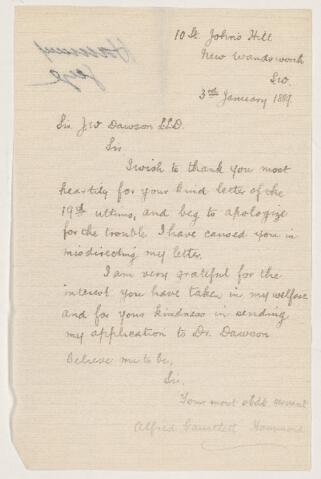 10 St. John's Hill
New Wandsworth
S.W.
3rd January 1889.
Sir J. W Dawson LL.D.
Sir
I wish to thank you most
heartily for your kind letter of the
19th ultimo, and beg to apologize
for the trouble I have caused you in
misdirecting my letter.
I am very grateful for the
interest you have taken in my welfare
and for your kindness in sending
my application to Dr. Dawson.
Believe me to be,
Sir,
Your most obdt servant
Alfred Gauntlett Hammond